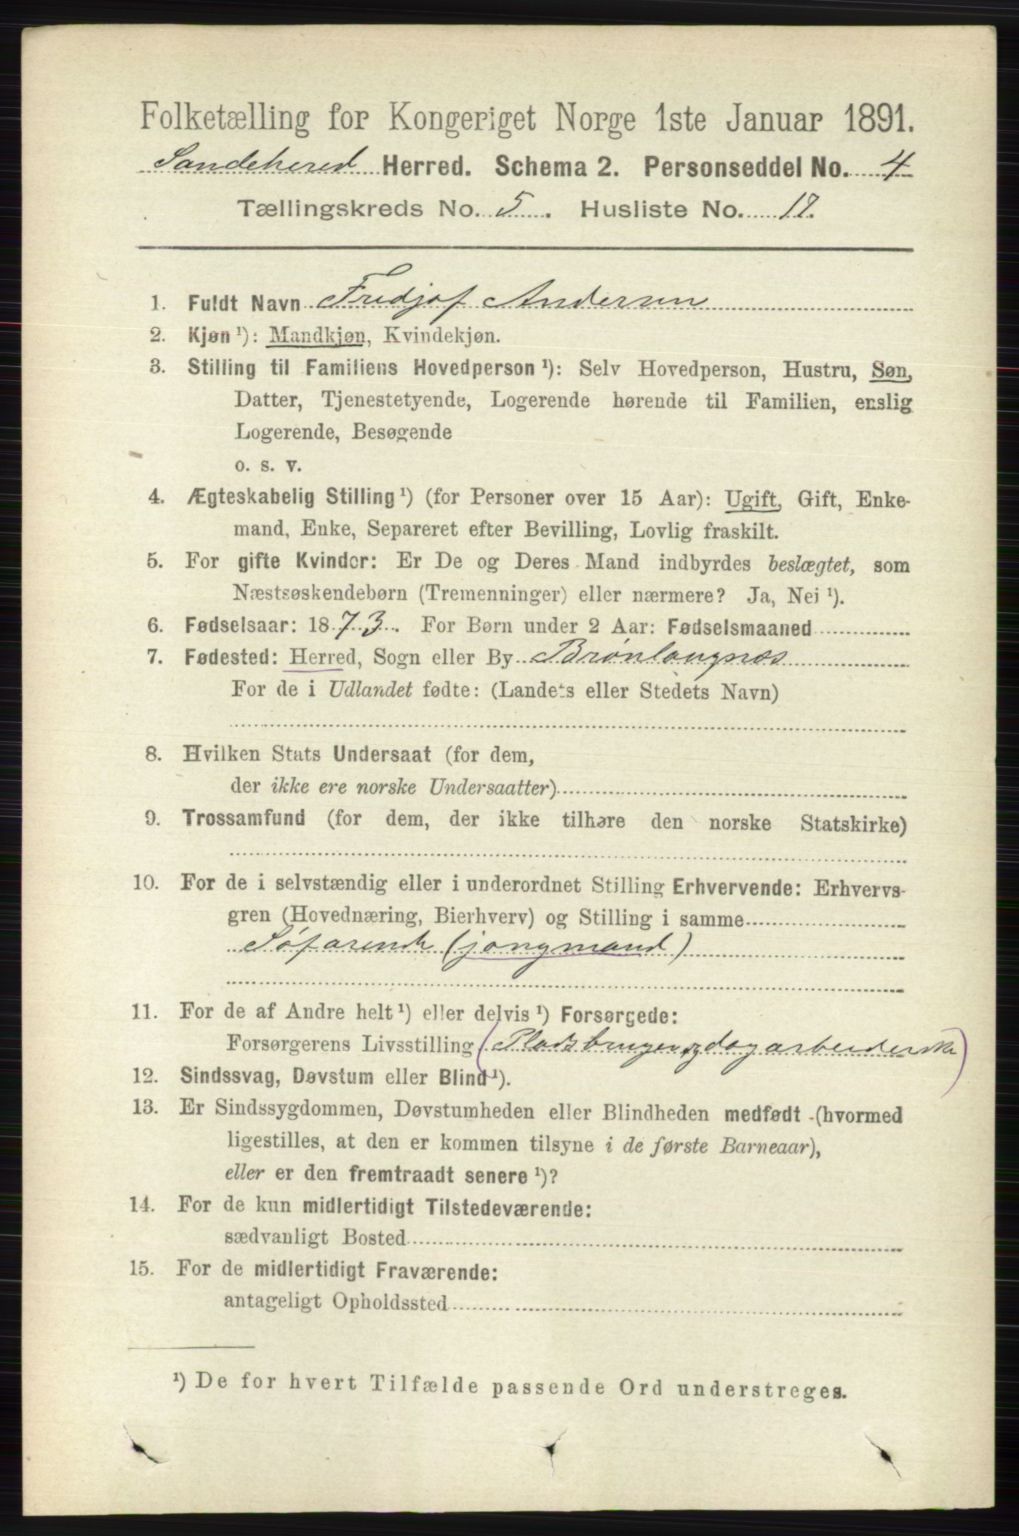 Folketælling for Kongeriget Norge 1ste Januar 1891.
Sandehered Herred. Schema 2. Personseddel No. 4
Tællingskreds No. 5. Husliste No. 17.
1. Fuldt Navn Fredjof Andersen
2. Kjøn ¹): Mandkjøn, Kvindekjøn.
3. Stilling til Familiens Hovedperson ¹): Selv Hovedperson, Hustru, Søn,
Datter, Tjenestetyende, Logerende hørende til Familien, enslig
Logerende, Besøgende
o. s. v.
4. Ægteskabelig Stilling ¹) (for Personer over 15 Aar): Ugift, Gift, Enke-
mand, Enke, Separeret efter Bevilling, Lovlig fraskilt.
5. For gifte Kvinder: Er De og Deres Mand indbyrdes beslægtet, som
Næstsøskendebørn (Tremenninger) eller nærmere? Ja, Nei ¹).
6. Fødselsaar: 1873. For Børn under 2 Aar: Fødselsmaaned
7. Fødested: Herred, Sogn eller By Brønlaugnæs
For de i Udlandet fødte: (Landets eller Stedets Navn)
8. Hvilken Stats Undersaat (for dem,
der ikke ere norske Undersaatter)
9. Trossamfund (for dem, der ikke tilhøre den norske Statskirke)
10. For de i selvstændig eller i underordnet Stilling Erhvervende: Erhvervs-
gren (Hovednæring, Bierhverv) og Stilling i samme
Søfarende (jongmand)
11. For de af Andre helt ¹) eller delvis ¹) Forsørgede:
Forsørgerens Livsstilling (Pladsbruger og dagarbeiderske)
12. Sindssvag, Døvstum eller Blind ¹).
13. Er Sindssygdommen, Døvstumheden eller Blindheden medfødt (hvormed
ligestilles, at den er kommen tilsyne i de første Barneaar),
eller er den fremtraadt senere ¹)?
14. For de kun midlertidigt Tilstedeværende:
sædvanligt Bosted
15. For de midlertidigt Fraværende:
antageligt Opholdssted
¹) De for hvert Tilfælde passende Ord understreges.